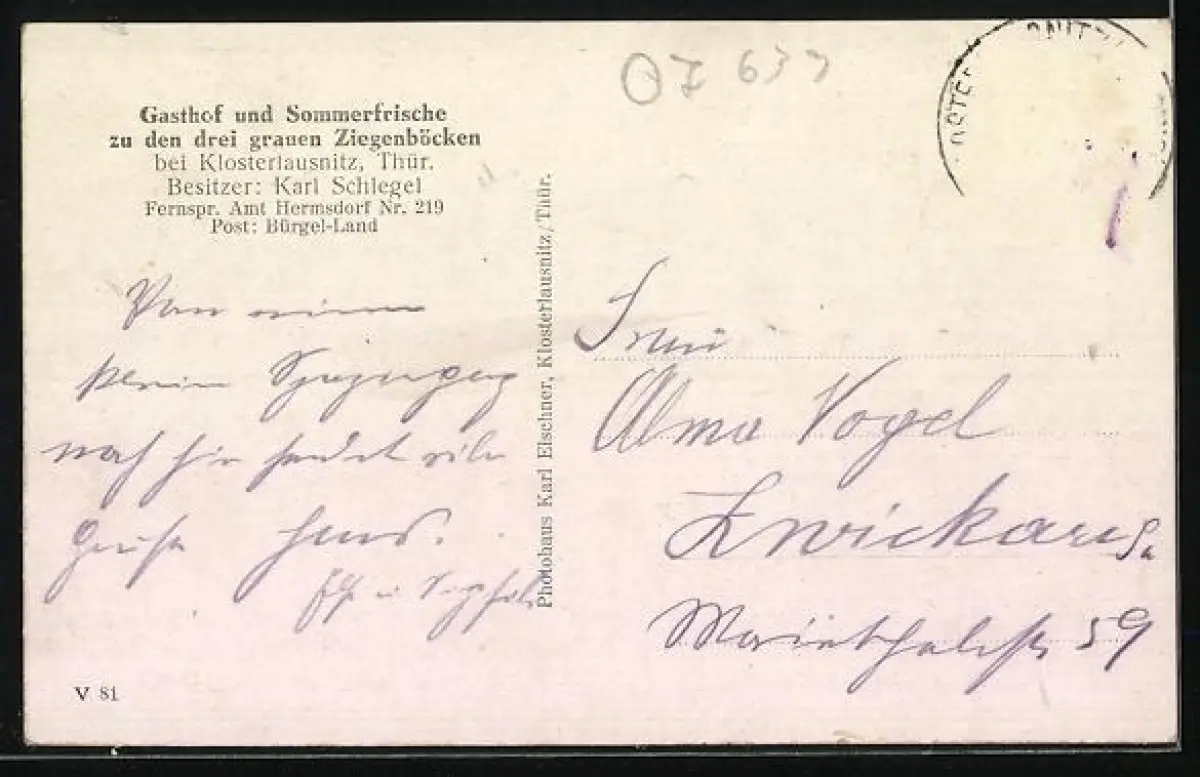 07633
Gasthof und Sommerfrische
zu den drei grauen Ziegenböcken
bei Klosterlausnitz, Thür.
Besitzer: Karl Schlegel
Fernspr. Amt Hermsdorf Nr. 219
Post: Bürgel-Land
Von einem
kleinen Spaziergang
nach hier sendet viele
Grüße Hans.
Photohaus Karl Elschner, Klosterlausnitz/Thür.
Frau
Alma Vogel
Zwickau Sa
Marienthalerstr 59
V 81